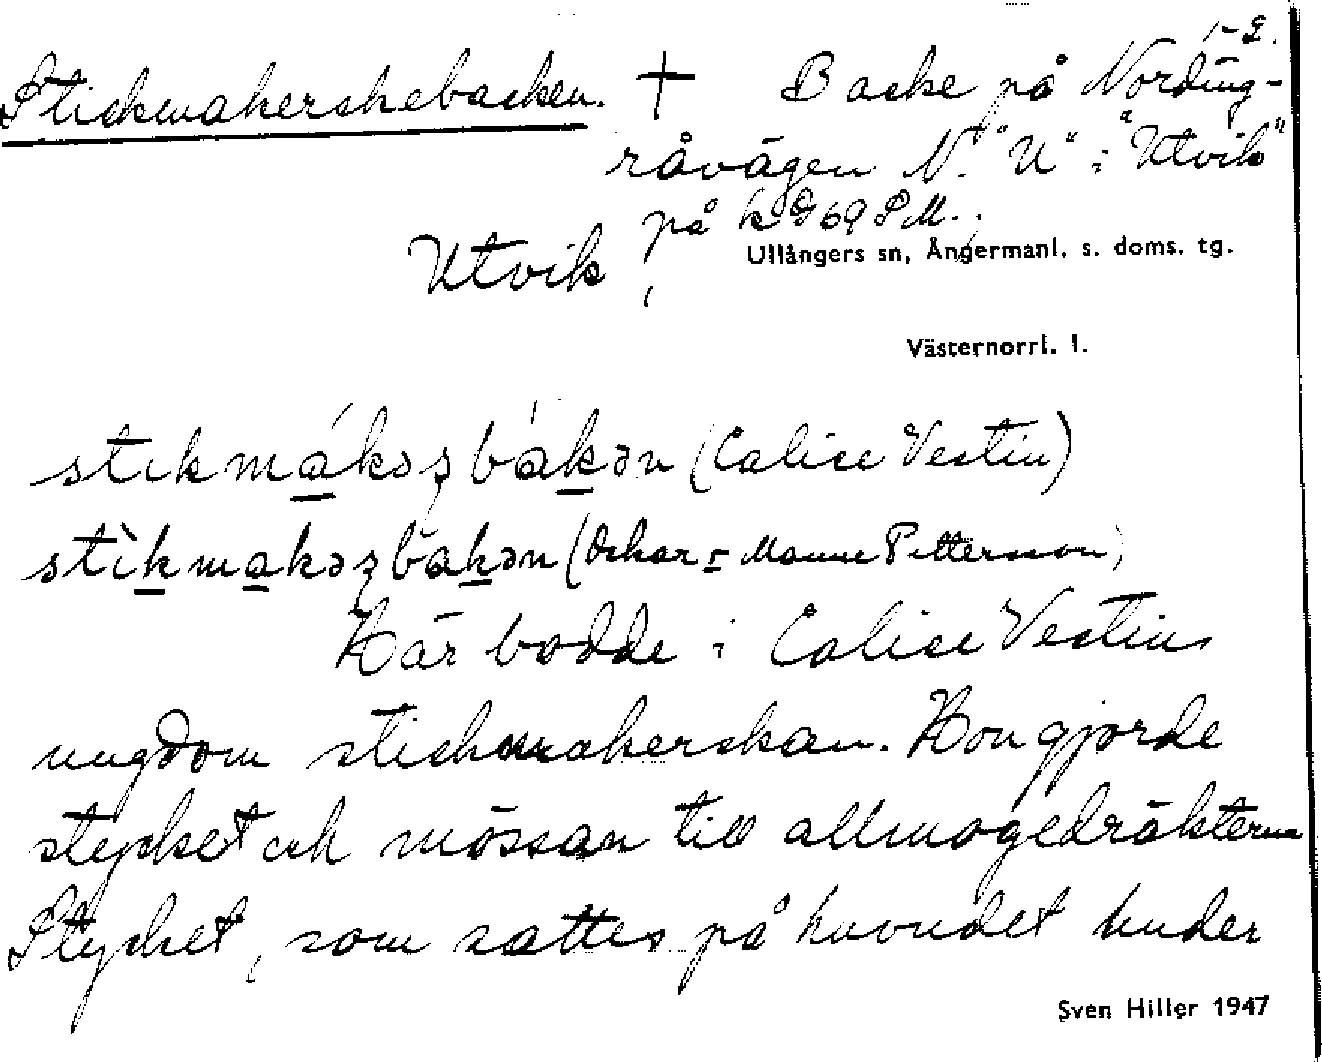 1-2.
Stickmakerskebacken. † Backe på Nording-
råvägen N. "U" i "Utvik"
på kG69SM.
Utvik,
Ullångers sn, Ångermanl. s. doms. tg.
Västernorrl. l.
stikmákəʂbákən (Calise Vestin)
stìkmakəʂbakən (Oskar o. Manne Pettersson)
Här bodde i Calise Vestins
ungdom stickmakerskan. Hon gjorde
stycket och mössan till allmogedräkterna
Stycket, som sattes på huvudet under
Sven Hiller 1947